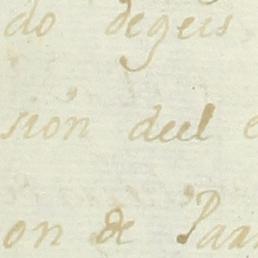 do degeis
sion del e
on de Paa